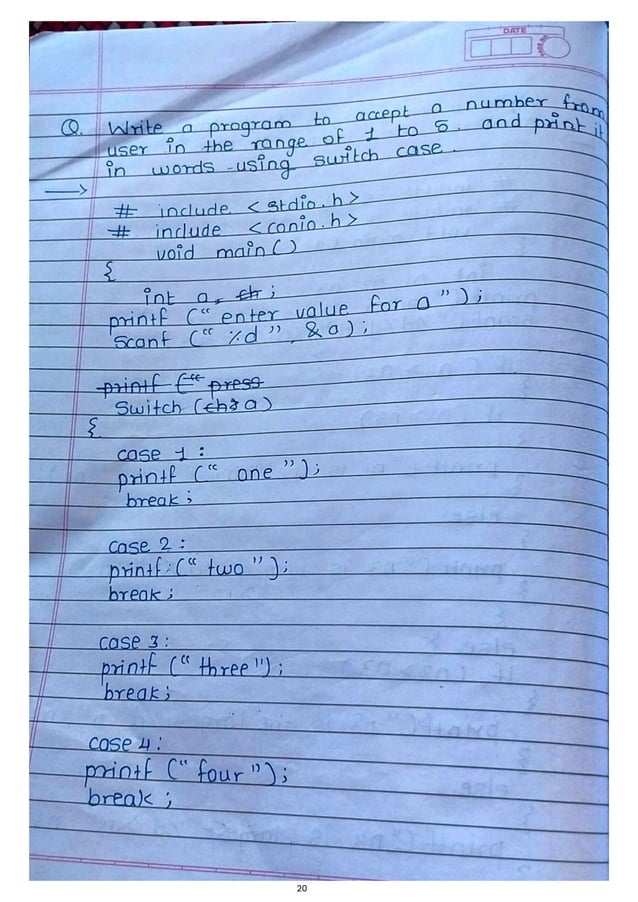 DATE
Q. Write a program to accept a number from
user in the range of 1 to 5. and print it
in words using switch case.
→
# include <stdio.h>
# include <conio.h>
void main()
{
int a, ch;
printf (“ enter value for a ”);
scanf (“ %d ”, &a);
printf (“ press
Switch (ch2 a)
{
case 1 :
printf (“ one ”);
break ;
case 2 :
printf (“ two ”);
break ;
case 3 :
printf (“ three ”);
break ;
case 4 :
printf (“ four ”);
break ;
20